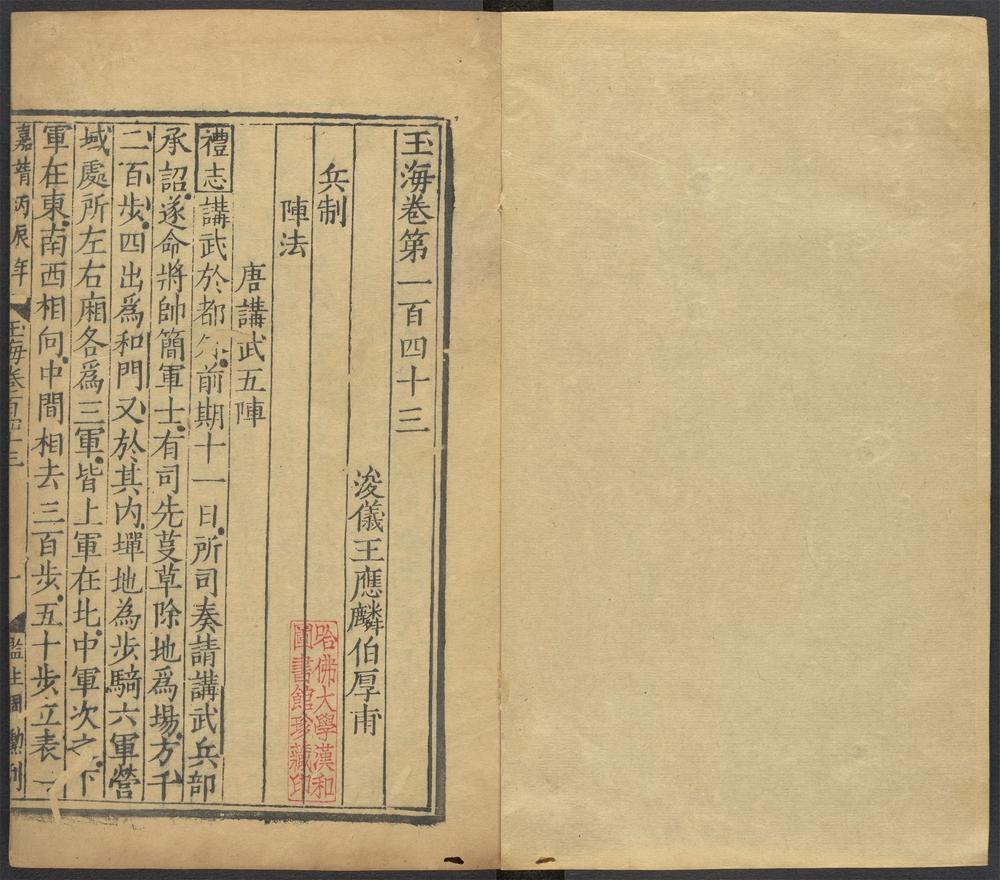 玉海卷第一百四十三
浚儀王應麟伯厚甫
兵制
陣法
唐講武五陣
禮志講武於都 前期十一日所司奏請講武兵部
承詔遂命將帥簡軍士有司先芟草除地爲場方千
二百步四出爲和門又於其内墠地為步騎六軍營
域處所左右廂各爲三軍皆上軍在北中軍次之下
軍在東南西相向中間相去三百步五十步立表一
嘉靖丙辰年 玉海卷一百四十三 一 監生 勲刊
哈佛大學漢和
圖書館珍藏印